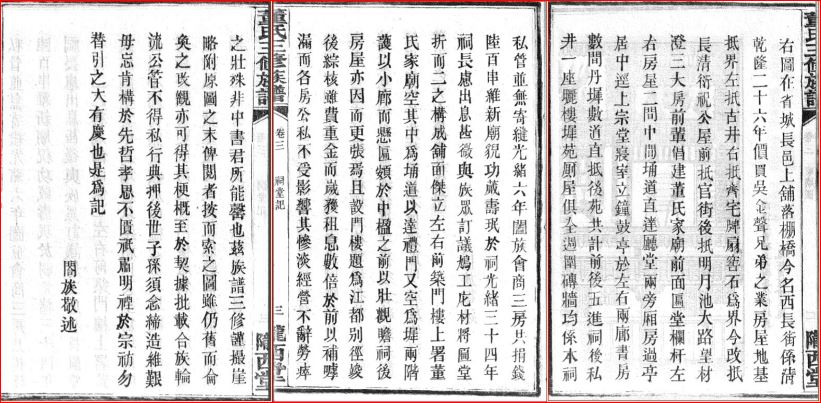 董氏三修族譜
右圖在省城長邑上舖落棚橋今名西長街係清
乾隆二十六年價買吳金聲兄弟之業房屋地基
抵界左抵古井右抵齊宅牌蔴窖石爲界今改抵
長清衍祝公屋前抵官街後抵明月池大路望材
澄三大房前董倡建董氏家廟前面匾堂欄杆左
右房屋二間中間埇道直達廳堂兩旁厢房過亭
居中逕上宗堂寢室立鐘鼓亭於左右兩廊書房
數間丹墀數道直抵後苑共計前後五進祠後私
井一座曬樓墀苑厠屋俱全週圍磚牆均係本祠
隴西堂
私管並無寄縫光緒六年闔族會商三房共捐錢
陸百串雜新廟貌功蕆壽珉於祠光緒三十四年
祠長慮出息甚微與族眾訂議鳩工庀材將匾堂
折而二之構成舖面傑立左右前築門樓上署董
氏家廟空其中爲埇道以達禮門又空爲墀兩階
護以小廊而懸匾額於中楹之前以壯觀瞻祠後
房屋亦因而更張焉且設門樓題爲江都别徑縗
後綜核雖費重金而嵗獲租息數倍於前以補哮
漏而各房公私不受影響其慘淡經營不辭勞瘁
董氏三修族譜
卷三
祠堂記
三
隴西堂
之壯殊非中書君所能罄也茲族譜三修謹撮崖
略附原圖之末俾閱者按而索之圖雖仍舊而侖
奐之改觀亦可得其梗概至於契據批載合族輪
流公管不得私行典押後世子孫須念締造維艱
毋忘肯構於先哲孝思不匱祇肅明禋於宗祊勿
替引之大有慶也是爲記
闔族敬述
董氏三修族譜
隴西堂